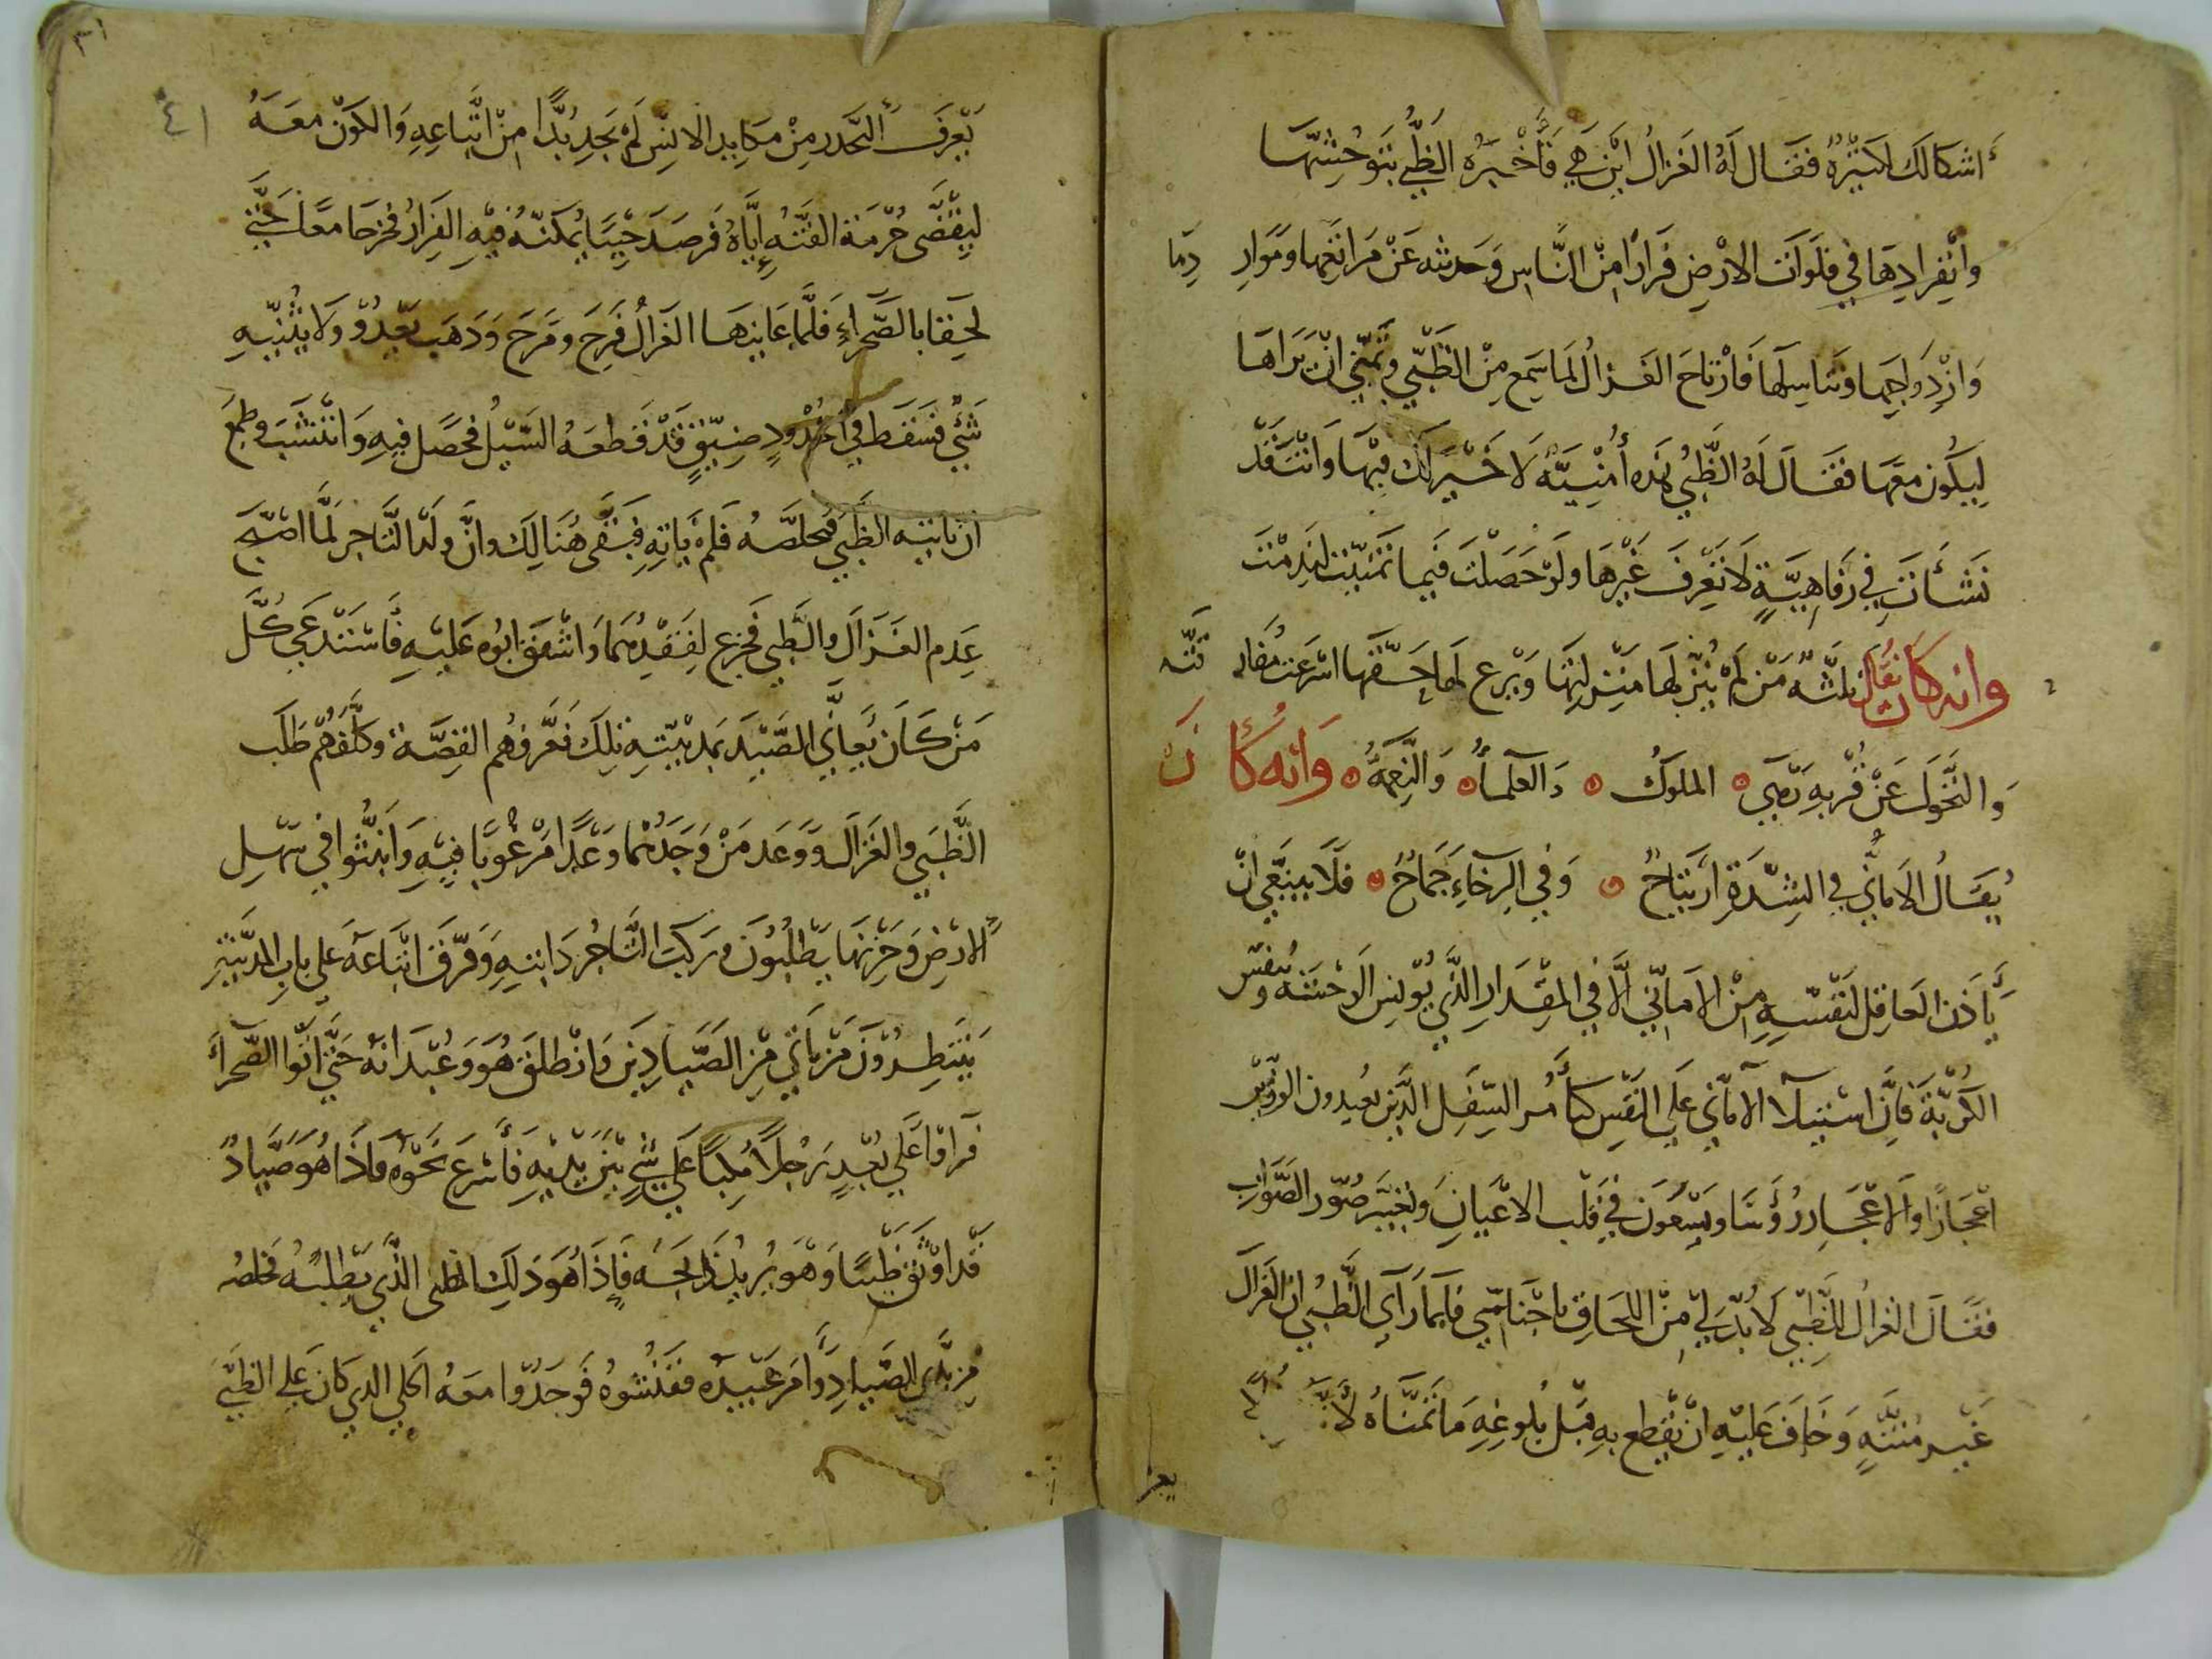 أشكالك كثيرة فقال له الغزال أين هي فأخبره الظبي بتوحشها
وانفرادها في فلوات الارض فرارا من الناس وحدثه عن مراتعها وموار دها
وازدواجها وتناسلها فارتاح الغزال لما سمع من الظبي وتمنى ان يراها
ليكون معها فقال له الظبي هذه أمنية لا خير لك فيها وانت قد
نشأت في رفاهية لا تعرف غيرها ولو حصلت فيما تمنيت لندمت
وانه كان يقال ثلثة من لم ينزلها منزلتها ويرع لها حقها اسرعت مفار قته
والتحول عن قربه وهي الملوك والعلماء والنعمة وانه كان
يقال الاماني في الشدة ارتياح وفي الرخاء جماح فلا ينبغي ان
يأذن العاقل لنفسه من الاماني الا في المقدار الذي يونس الوحشة وينفس
الكربة فان استيلاء الاماني على النفس كتأمر السفل الذين يعيدون الرؤوس
اعجازا والاعجاز رؤسا ويسعون في قلب الاعيان وتغيير صور الصواب
فقال الغزال للظبي لا بد لي من اللحاق باجناسي فلما رآي الظبي ان الغزال
غير منته وخاف عليه ان يقطع به قبل بلوغه ما تمناه لانه لم
يعر
٣١
٤١
يعرف التحذر من مكايد الانس لم يجد بدا من اتباعه والكون معه
ليقضى حرمة الفته إياه فرصد حينا يمكنه فيه الفرار فخرجا معا حتى
لحقا بالصحراء فلما عاينها الغزال فرح ومرح وذهب يعدو ولا يثنيه
شئ فسقط في أخدود ضيق قد قطعه السيل فحصل فيه وانتشب وطمع
ان ياتيه الظبي فيخلصه فلم ياته فبقى هنالك وان ولد التاجر لما اصبح
عدم الغزال والظبي فجزع لفقدهما واشفق ابوه عليه فاستدعى كل
من كان يعاني الصيد بمدينته تلك فعرفهم القصة وكلفهم طلب
الظبي والغزال ووعد من وجدهما وعدا مرغوبا فيه وانبثوا في سهل
الارض وحزنها يطلبون وركب التاجر دابته وفرق اتباعه على باب المدينة
ينتظرون من ياتي من الصيادين وانطلق هو وعبدانه حتى اتوا الصحراء
فرأوا على بعد رجلا مكبا على شئ بين يديه فأسرع نحوه فاذا هو صياد
قد اوثق ظبيا وهو يريد ذبحه فاذا هو ذلك الظبي الذي يطلبه فخلصه
من يدي الصياد وأمر عبيده ففتشوه فوجدوا معه الحلي الذي كان على الظبي